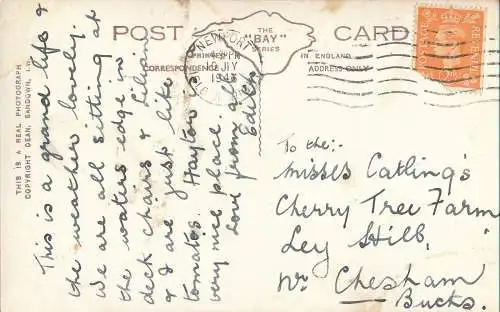 POST CARD
THE
"BAY"
SERIES
PRINTED IN ENGLAND
CORRESPONDENCE
ADDRESS ONLY
NEWPORT
JLY
1947
THIS IS A REAL PHOTOGRAPH
COPYRIGHT, DEAN, SANDOWN, I.W.
This is a grand life &
the weather lovely.
We are all sitting at
the waters edge in
deck chairs & Lilian
& I are just like
tomatos. Hayton is a
very nice place.
Love from all
Edith
To the:-
Misses Catling's
Cherry Tree Farm
Ley Hill,
Nr. Chesham
Bucks.